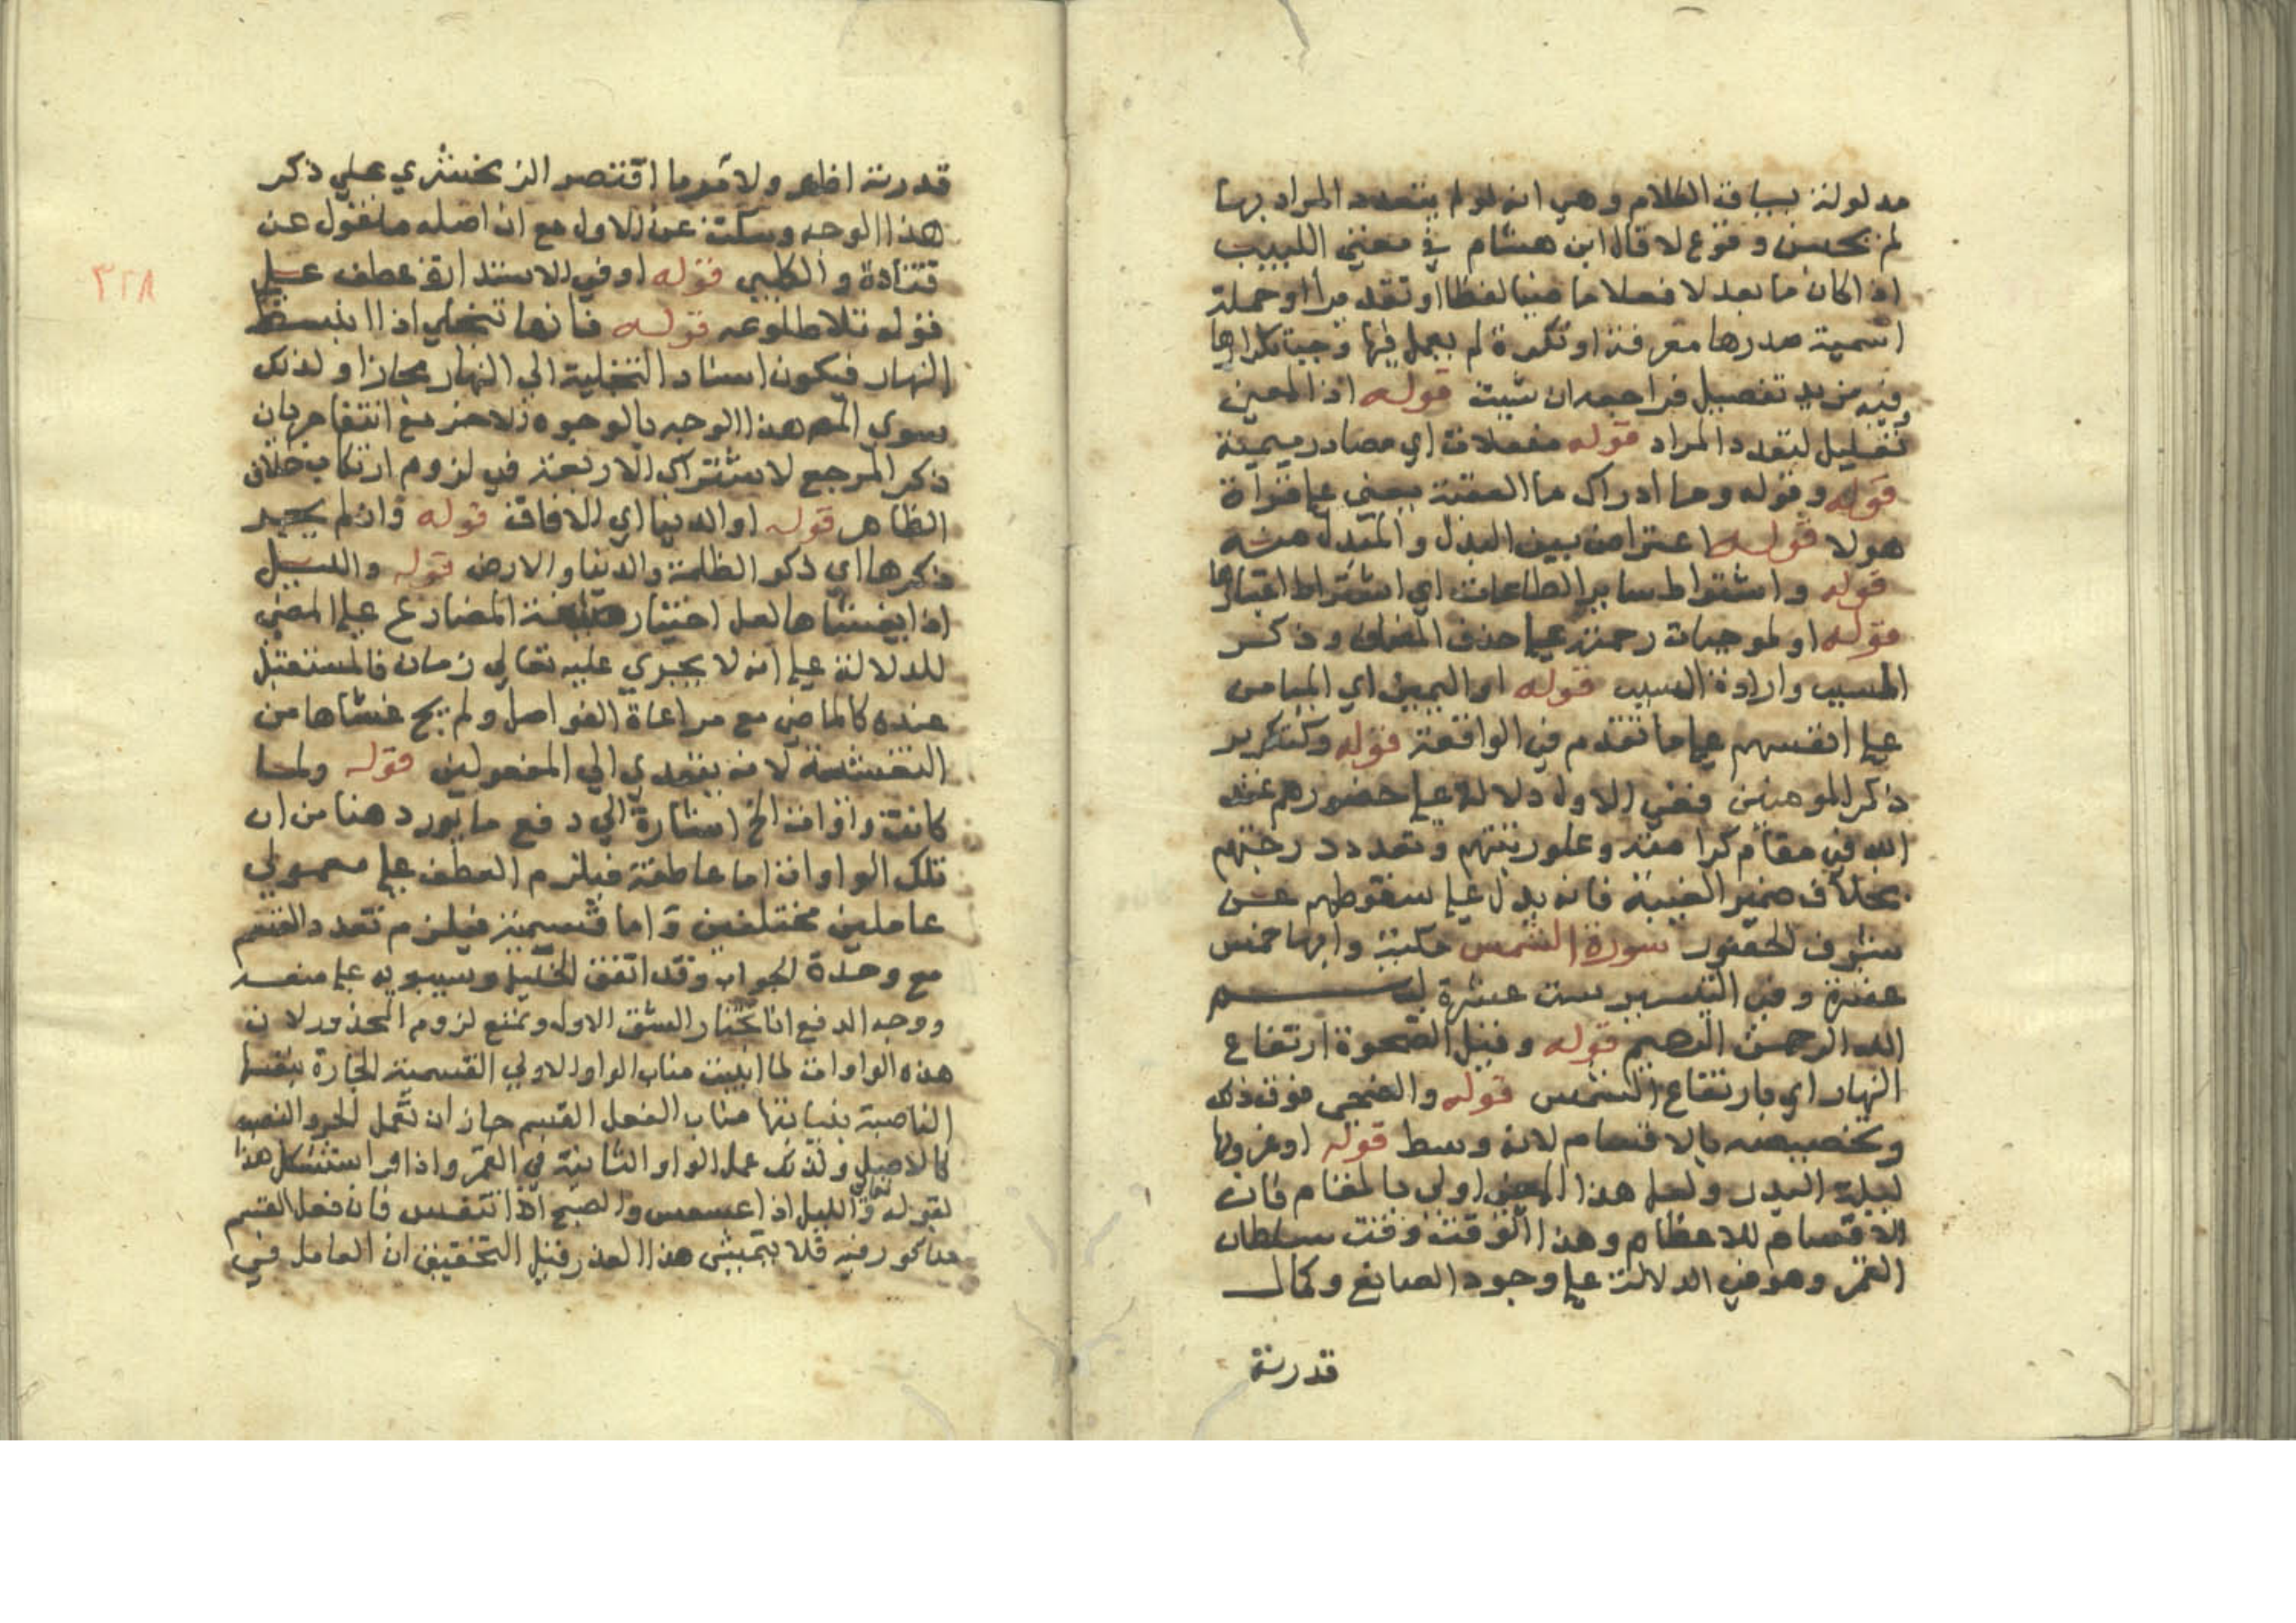 مدلولة بسياق الكلام وهي انه لو لم يتعدد المراد بها
لم يحسن وقوع لا قال ابن هشام في مغني اللبيب
اذا كان ما بعد لا فعلا ماضيا لفظا او تقديرا او جملة
اسمية صدرها معرفة او نكرة لم يعمل فيها وجب تكرارها
وفيه مزيد تفصيل فراجعه ان شيت قوله اذ المعني
تعليل لتعدد المراد قوله مفعلات اي مصادر ميمية
قوله وقوله وما ادراك ما العقبة يعني علي قراة
هولا قوله اعتراض بين البدل والمبدل منه
قوله واشتراط ساير الطاعات اي اشتراط اعتبارها
قوله او لموجبات رحمته علي حذف المضاف وذكر
المسبب وارادة السبب قوله او اليمين اي الميامن
علي انفسهم علي ما تقدم في الواقعة قوله وكتكرير
ذكر المومنين ففي الاول دلالة علي حضورهم عند
الله في مقام كرامته وعلو رتبتهم وتعدد درجتهم
بخلاف ضمير الغيبة فانه يدل علي سقوطهم عن
شرف الحضور سورة الشمس مكية وايها خمس
عشرة وفي التيسير ست عشرة بسم
الله الرحمن الرحيم قوله وقيل الضحوة ارتفاع
النهار اي بارتفاع الشمس قوله والضحي فوق ذلك
وتخصيصه بالاقسام لانه وسط قوله او غروبها
ليلة البدر ولعل هذا المعني اولي بالمقام فان
الاقسام للاعظام وهذا الوقت وقت سلطان
القمر وهو في الدلالة علي وجود الصانع وكمال
قدرته
٣٢٨
قدرته اظهر ولامر ما اقتصر الزمخشري علي ذكر
هذا الوجه وسكت عن الاول مع ان اصله منقول عن
قتادة والكلبي قوله او في الاستدارة عطف علي
قوله تلا طلوعه قوله فانها تتجلي اذا انبسط
النهار فيكون اسناد التجلية الي النهار مجازا ولذلك
سوي المص هذا الوجه بالوجوه الاخر مع انتفا جريان
ذكر المرجع لاشتراك الاربعة في لزوم ارتكاب خلاف
الظاهر قوله او الدنيا اي الافاق قوله وان لم يجر
ذكرها اي ذكر الظلمة والدنيا والارض قوله والليل
اذا يغشاها لعل اختيار صيغة المضارع علي المضي
للدلالة علي انه لا يجري عليه تعالي زمان فالمستقبل
عنده كالماضي مع مراعاة الفواصل ولم يج غشاها من
التغشية لانه يتعدي الي المفعولين قوله ولما
كانت واوات الخ اشارة الي دفع ما يورد هنا من ان
تلك الواوات اما عاطفة فيلزم العطف علي معمولي
عاملين مختلفين واما قسمية فيلزم تعدد القسم
مع وحدة الجواب وقد اتفق الخليل وسيبويه علي منعه
ووجه الدفع انا نختار الشق الاول ونمنع لزوم المحذور لان
هذه الواوات لما انيبت مناب الواو الاولي القسمية الجارة بنفسها
الناصبة بنيابتها مناب الفعل القسم جاز ان تعمل الجر والنصب
كالاصيل ولذلك عمل الواو الثانية في القمر واذا واستشكل هذا
لقوله تعالي والليل اذا عسعس والصبح اذا تنفس فان فعل القسم
مذكور فيه فلا يتمشي هذا العذر فقيل التحقيق ان العامل في